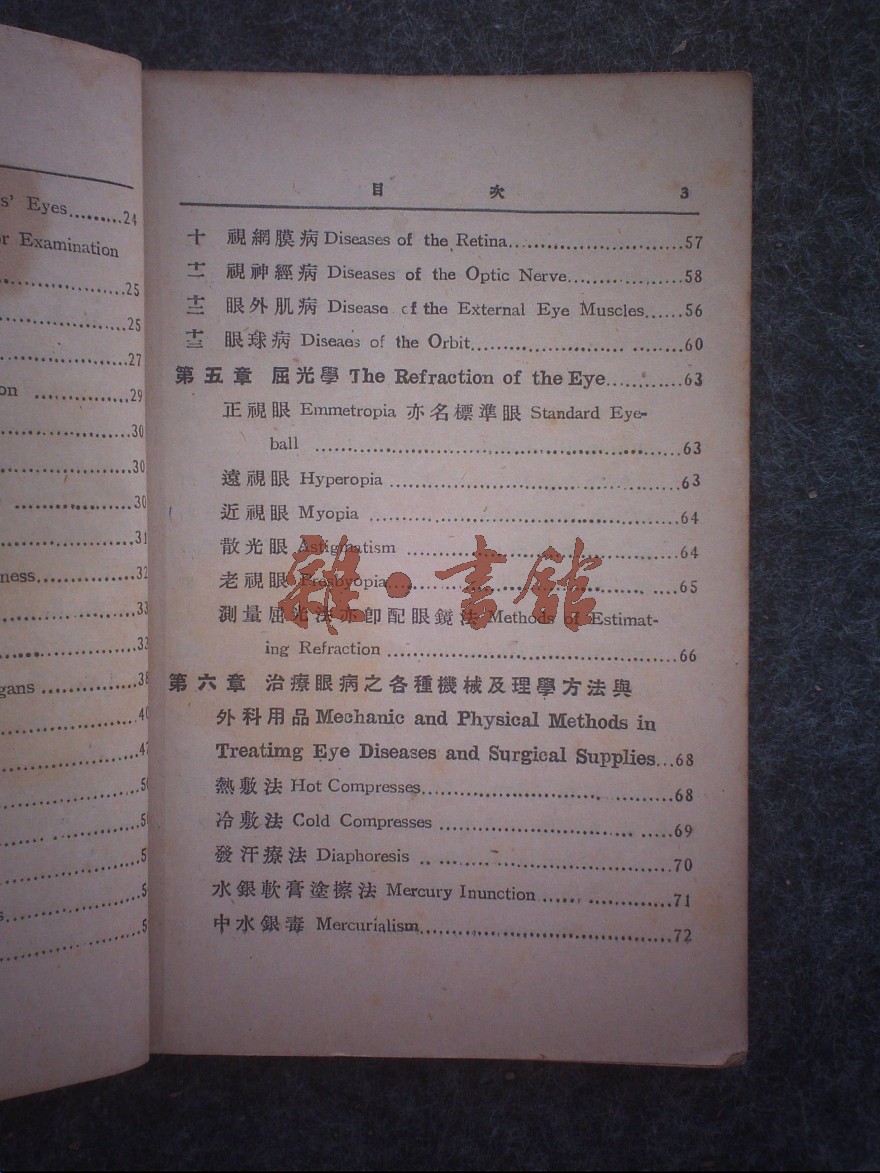 s' Eyes.........24
r Examination
25
25
27
on ............29
30
30
30
31
ness............32
33
33
38
gans
40
47
目 次 3
十 視網膜病 Diseases of the Retina..............................57
十一 視神經病 Diseases of the Optic Nerve....................58
十二 眼外肌病 Disease of the External Eye Muscles......56
十三 眼球病 Diseaes of the Orbit....................................60
第五章 屈光學 The Refraction of the Eye............63
正視眼 Emmetropia 亦名標準眼 Standard Eye-
ball ......................................................63
遠視眼 Hyperopia ..........................................63
近視眼 Myopia .............................................64
散光眼 Astigmatism .......................................64
老視眼 Presbyopia..........................................65
測量屈光法亦卽配眼鏡法 Methods of Estimat-
ing Refraction ..........................................66
第六章 治療眼病之各種機械及理學方法與
外科用品 Mechanic and Physical Methods in
Treatimg Eye Diseases and Surgical Supplies...68
熱敷法 Hot Compresses....................................68
冷敷法 Cold Compresses .................................69
發汗療法 Diaphoresis ....................................70
水銀軟膏塗擦法 Mercury Inunction .....................71
中水銀毒 Mercurialism....................................72
雜·書館